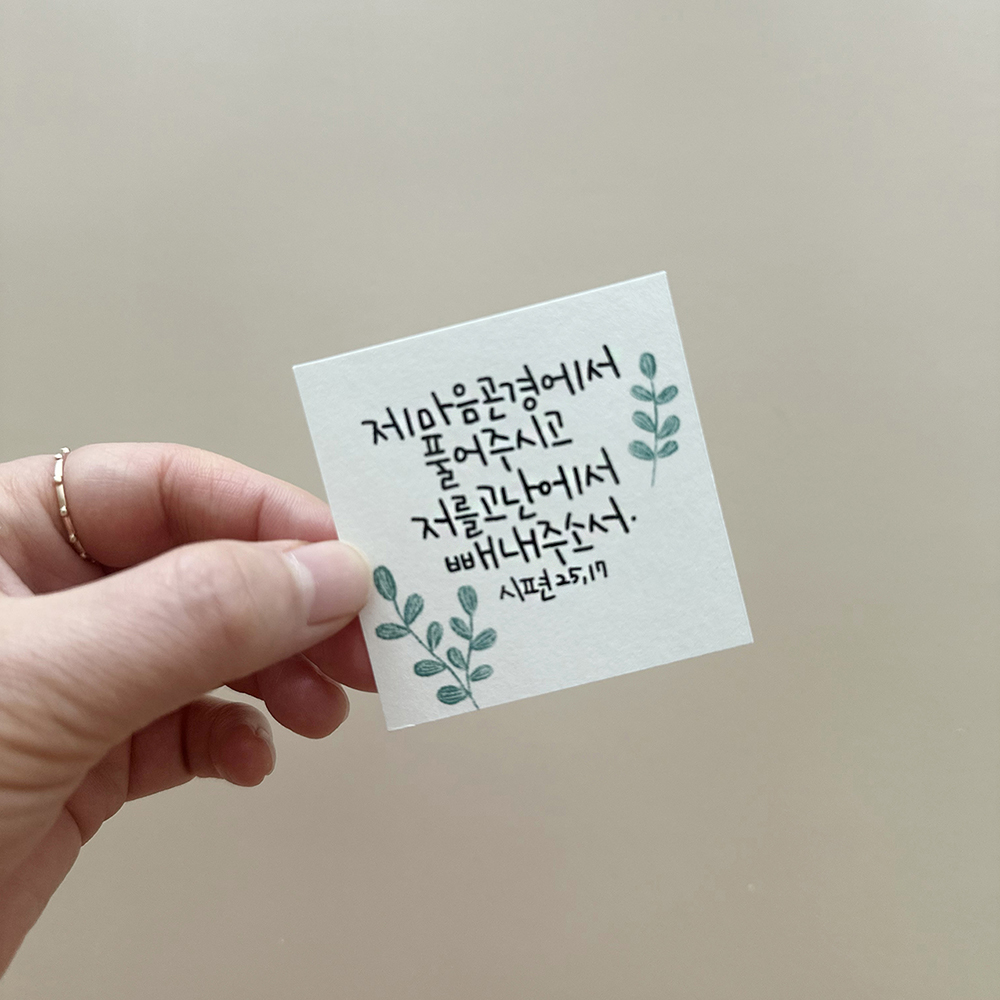 제 마음 곤경에서
풀어 주시고
저를 고난에서
빼내 주소서.
시편 25,17